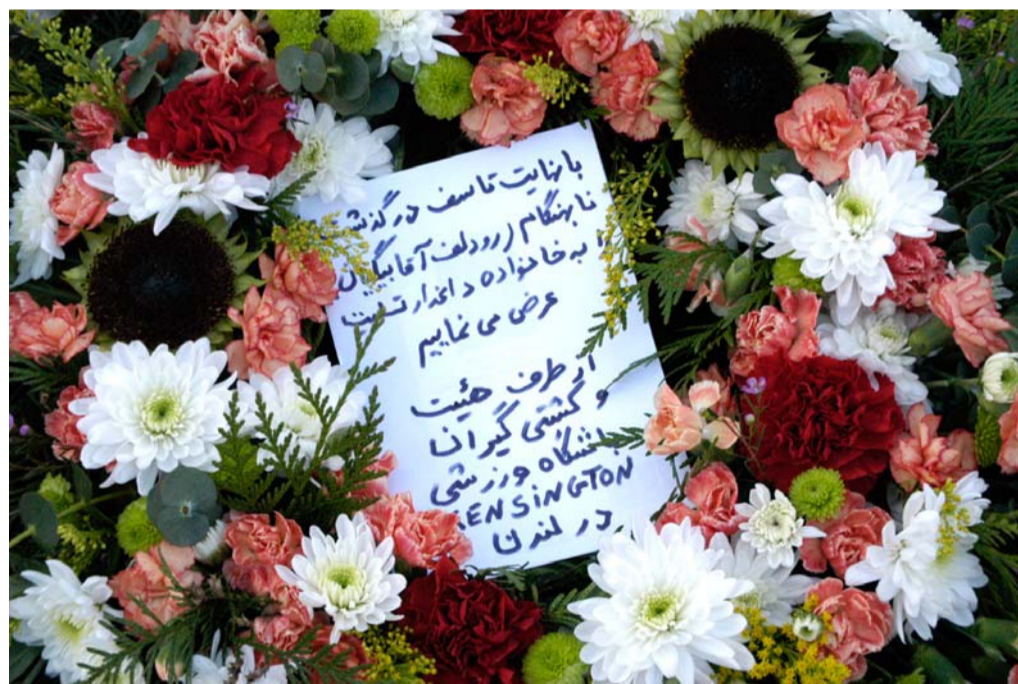 با نهایت تاسف درگذشت
نا بهنگام (رودلف آقابیگیان
به خانواده داغدار تسلیت
عرض می نماییم
از طرف هئیت
و کشتی گیران
باشگاه ورزشی
KENSINGTON
در لندن